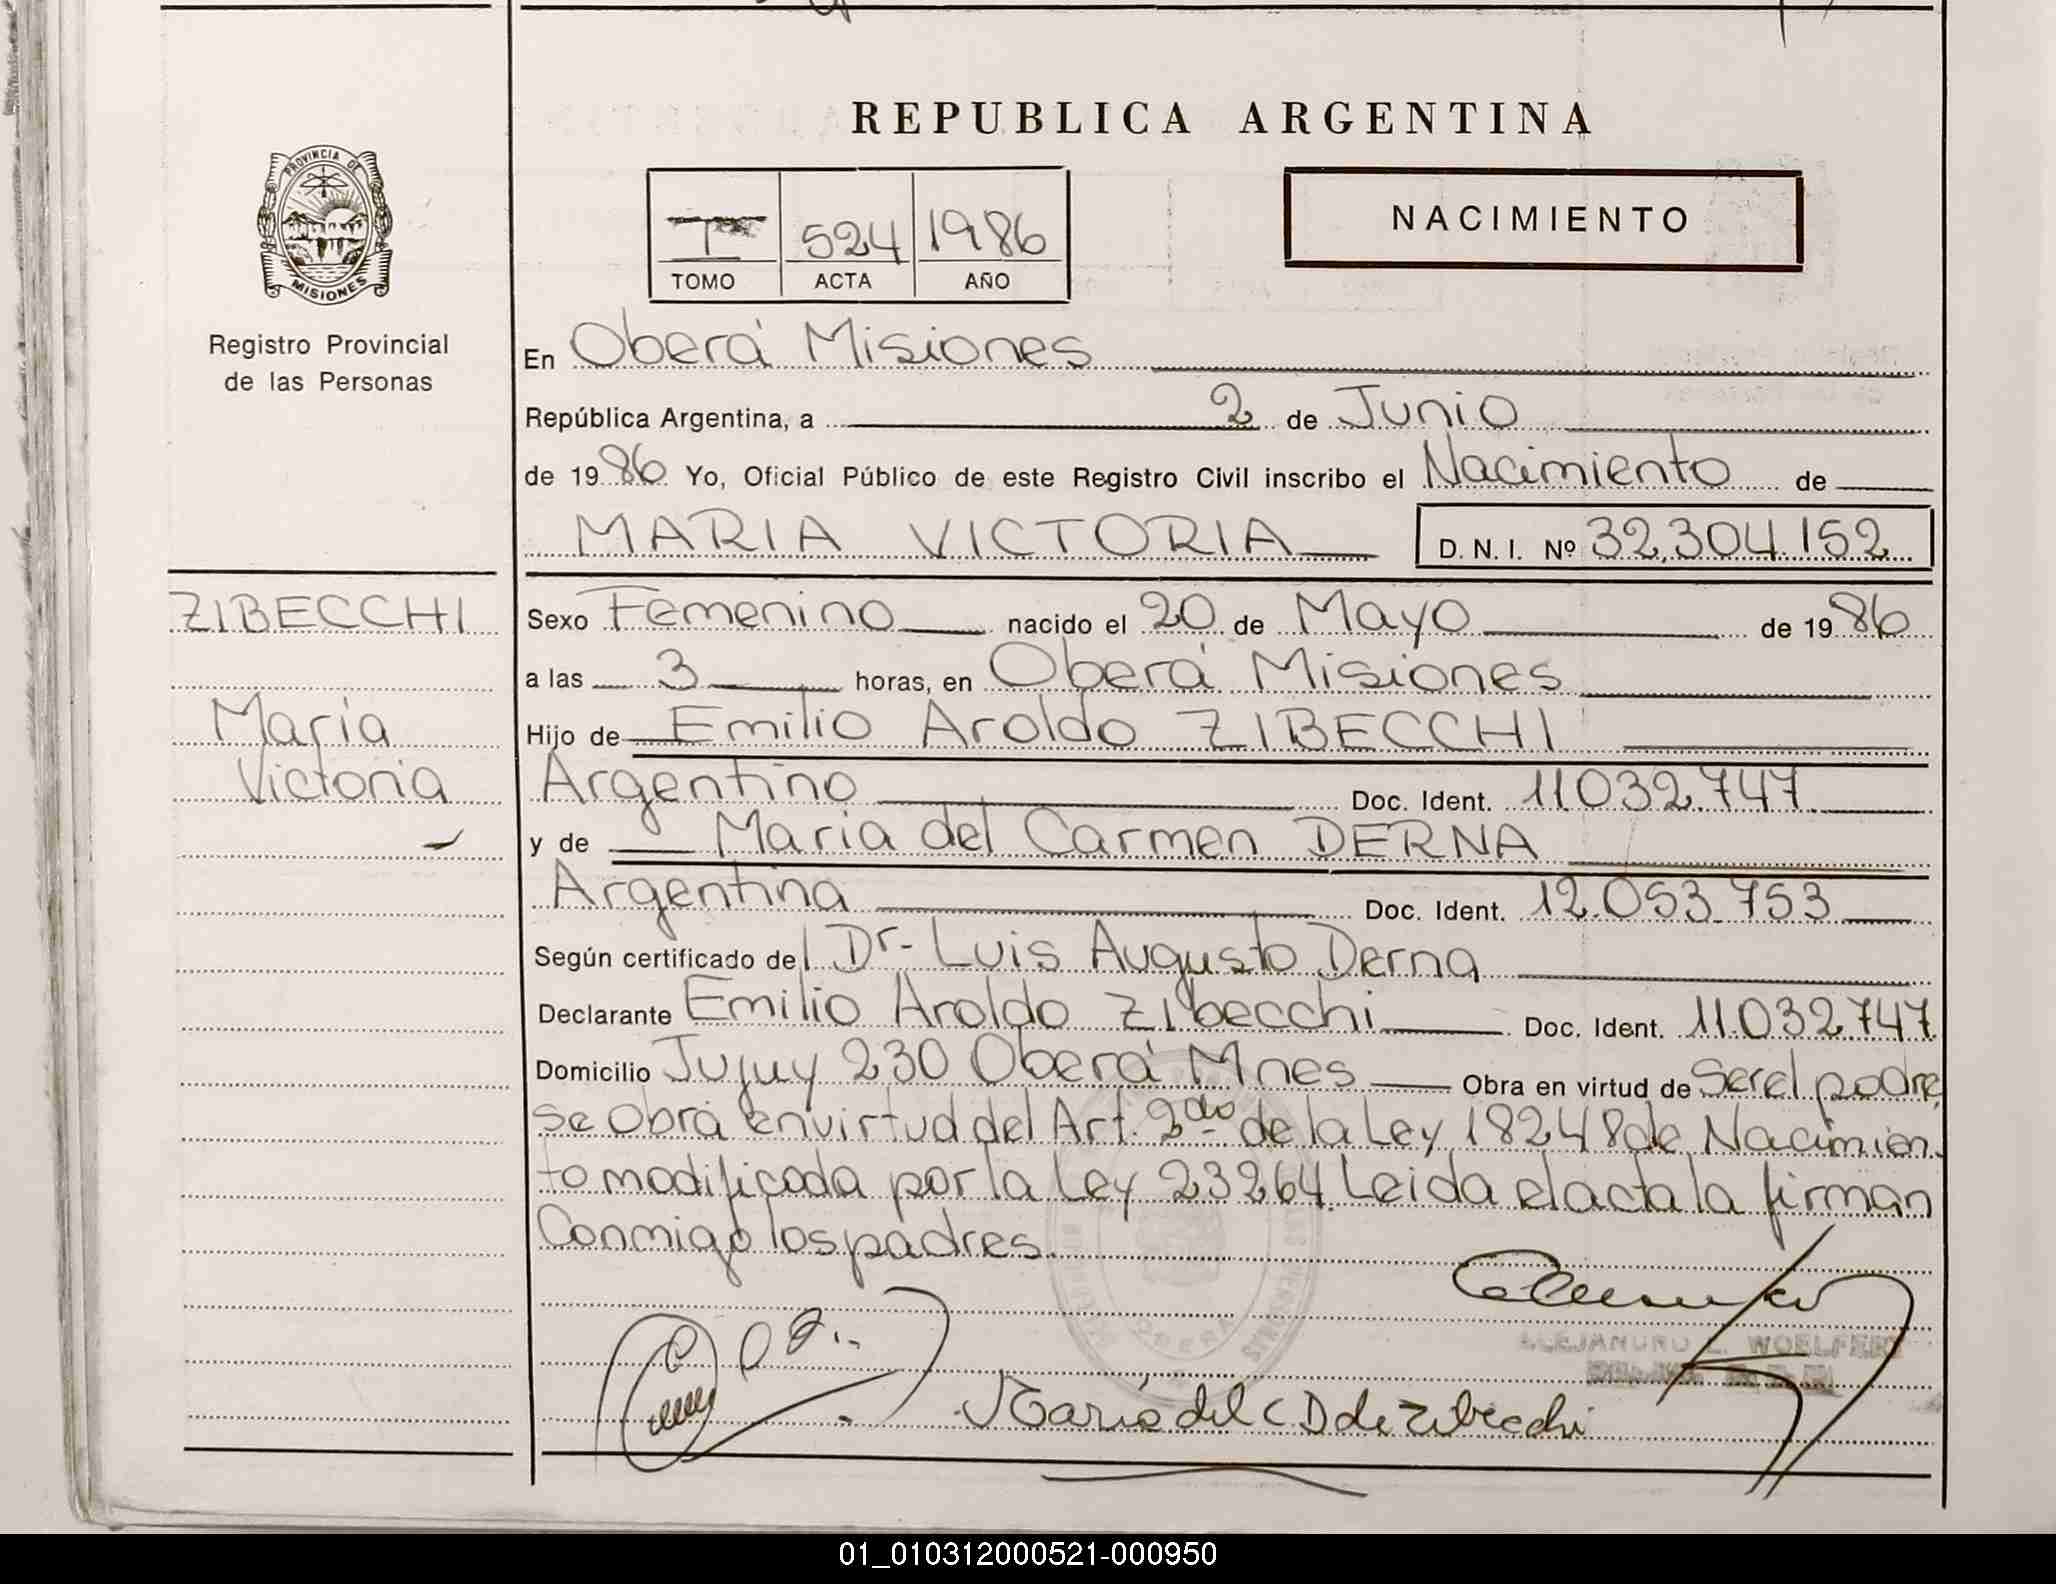 REPUBLICA ARGENTINA
PROVINCIA DE
MISIONES
Registro Provincial
de las Personas
T 524 1986
TOMO ACTA AÑO
NACIMIENTO
En Oberá Misiones
República Argentina, a 2 de Junio
de 1986 Yo, Oficial Público de este Registro Civil inscribo el Nacimiento de
MARIA VICTORIA D. N. I. Nº 32.304.152
ZIBECCHI
María
Victoria
Sexo Femenino nacido el 20 de Mayo de 1986
a las 3 horas, en Oberá Misiones
Hijo de Emilio Aroldo ZIBECCHI
Argentino Doc. Ident. 11032.747
y de Maria del Carmen DERNA
Argentina Doc. Ident. 12.053.753
Según certificado del Dr- Luis Augusto Derna
Declarante Emilio Aroldo Zibecchi Doc. Ident. 11.032.747
Domicilio Jujuy 230 Oberá Mnes Obra en virtud de Ser el padre,
se obra en virtud del Art. 2do de la Ley 18248 de Nacimien
to modificada por la Ley 23264. Leida el acta la firman
Conmigo los padres.
María del C D de Zibecchi
01_010312000521-000950